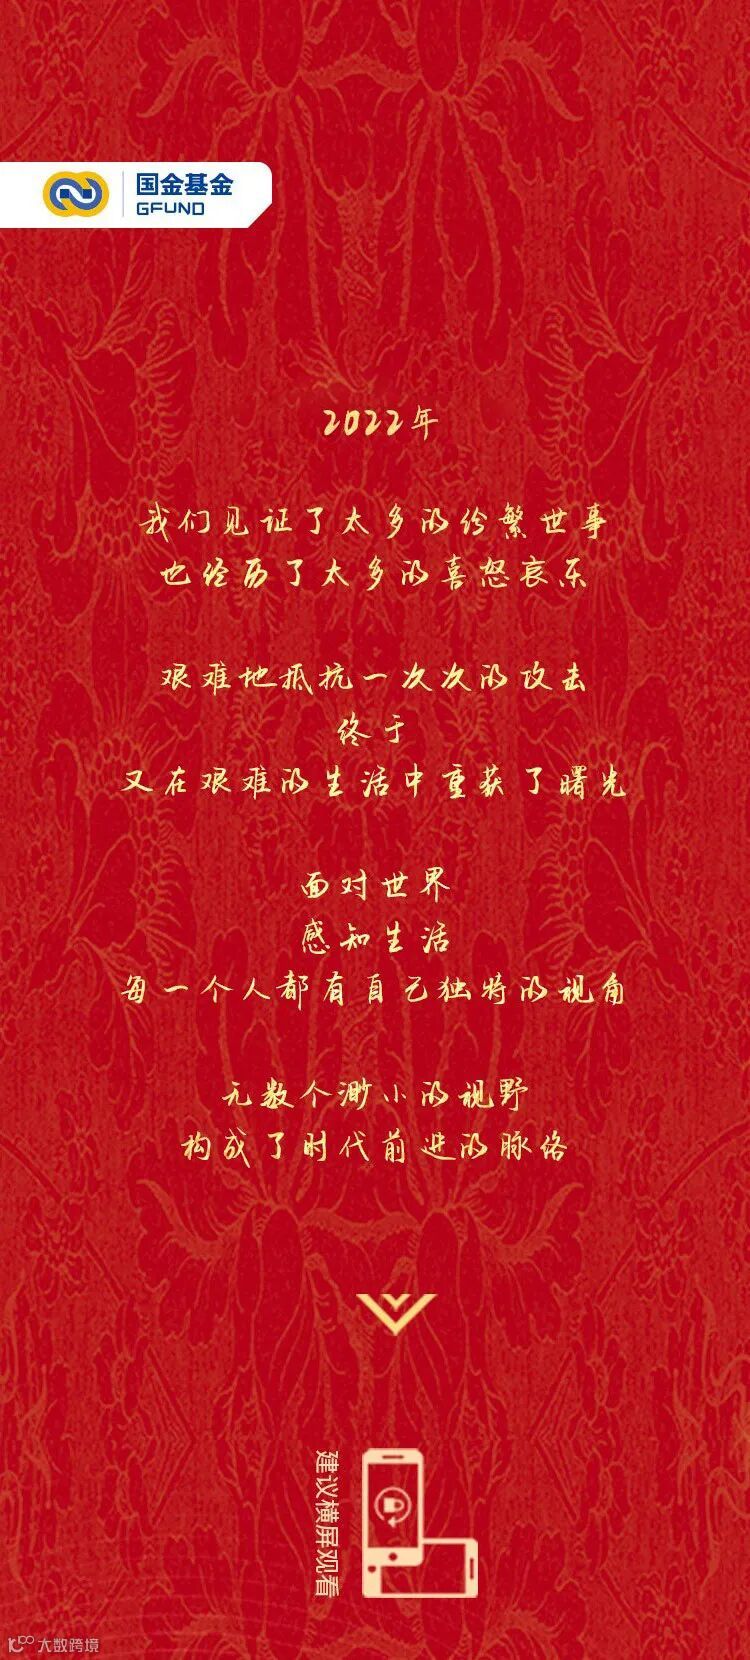 国金基金
GFUND
2022年
我们见证了太多的纷繁世事
也经历了太多的喜怒哀乐
艰难地抵抗一次次的攻击
终于
又在艰难的生活中重获了曙光
面对世界
感知生活
每一个人都有自己独特的视角
无数个渺小的视野
构成了时代前进的脉络
建议横屏观看
大数跨境